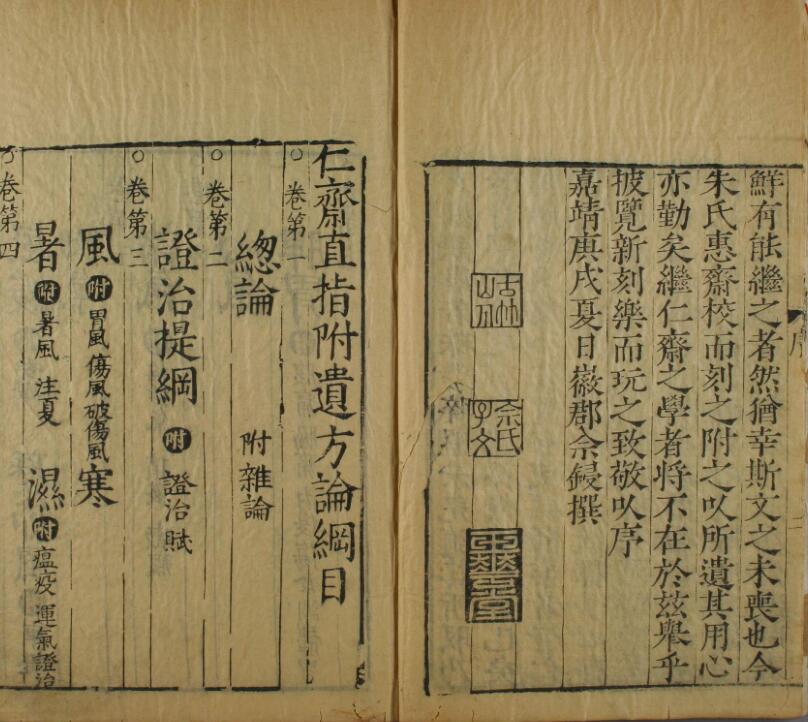 鮮有能繼之者然猶幸斯文之未喪也今
朱氏惠齋校而刻之附之以所遺其用心
亦勤矣繼仁齋之學者將不在於茲舉乎
披覽新刻樂而玩之致敬以序
嘉靖庚戌夏日徽郡佘鋟撰
佘氏
子文
序
二
仁齋直指附遺方論綱目
○卷第一
總論 附雜論
○卷第二
證治提綱 附 證治賦
○卷第三
風 附 胃風 傷風 破傷風 寒
暑 附 暑風 注夏 濕 附 瘟疫 運氣證治
○卷第四